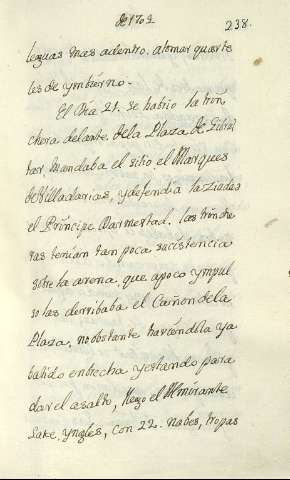 de 1704
238.
leguas mas adentro. atomar quarte
les de ymbierno.
El Dia 21. se habrio la trin
chera delante. dela Plaza de Gibral
tar. Mandaba el sitio. el Marques
de Villadarias, y defendia la ziudad
el Principe Darmestad. las trinche
ras tenian tan poca sucistencia
sobre la arena. que apoco ympul
so las derribaba el Cañon dela
Plaza, no obstante haviendola ya
batido en brecha y estando para
dar el asalto, llego el Almirante
Lake. yngles, con 22. nabes, tropas